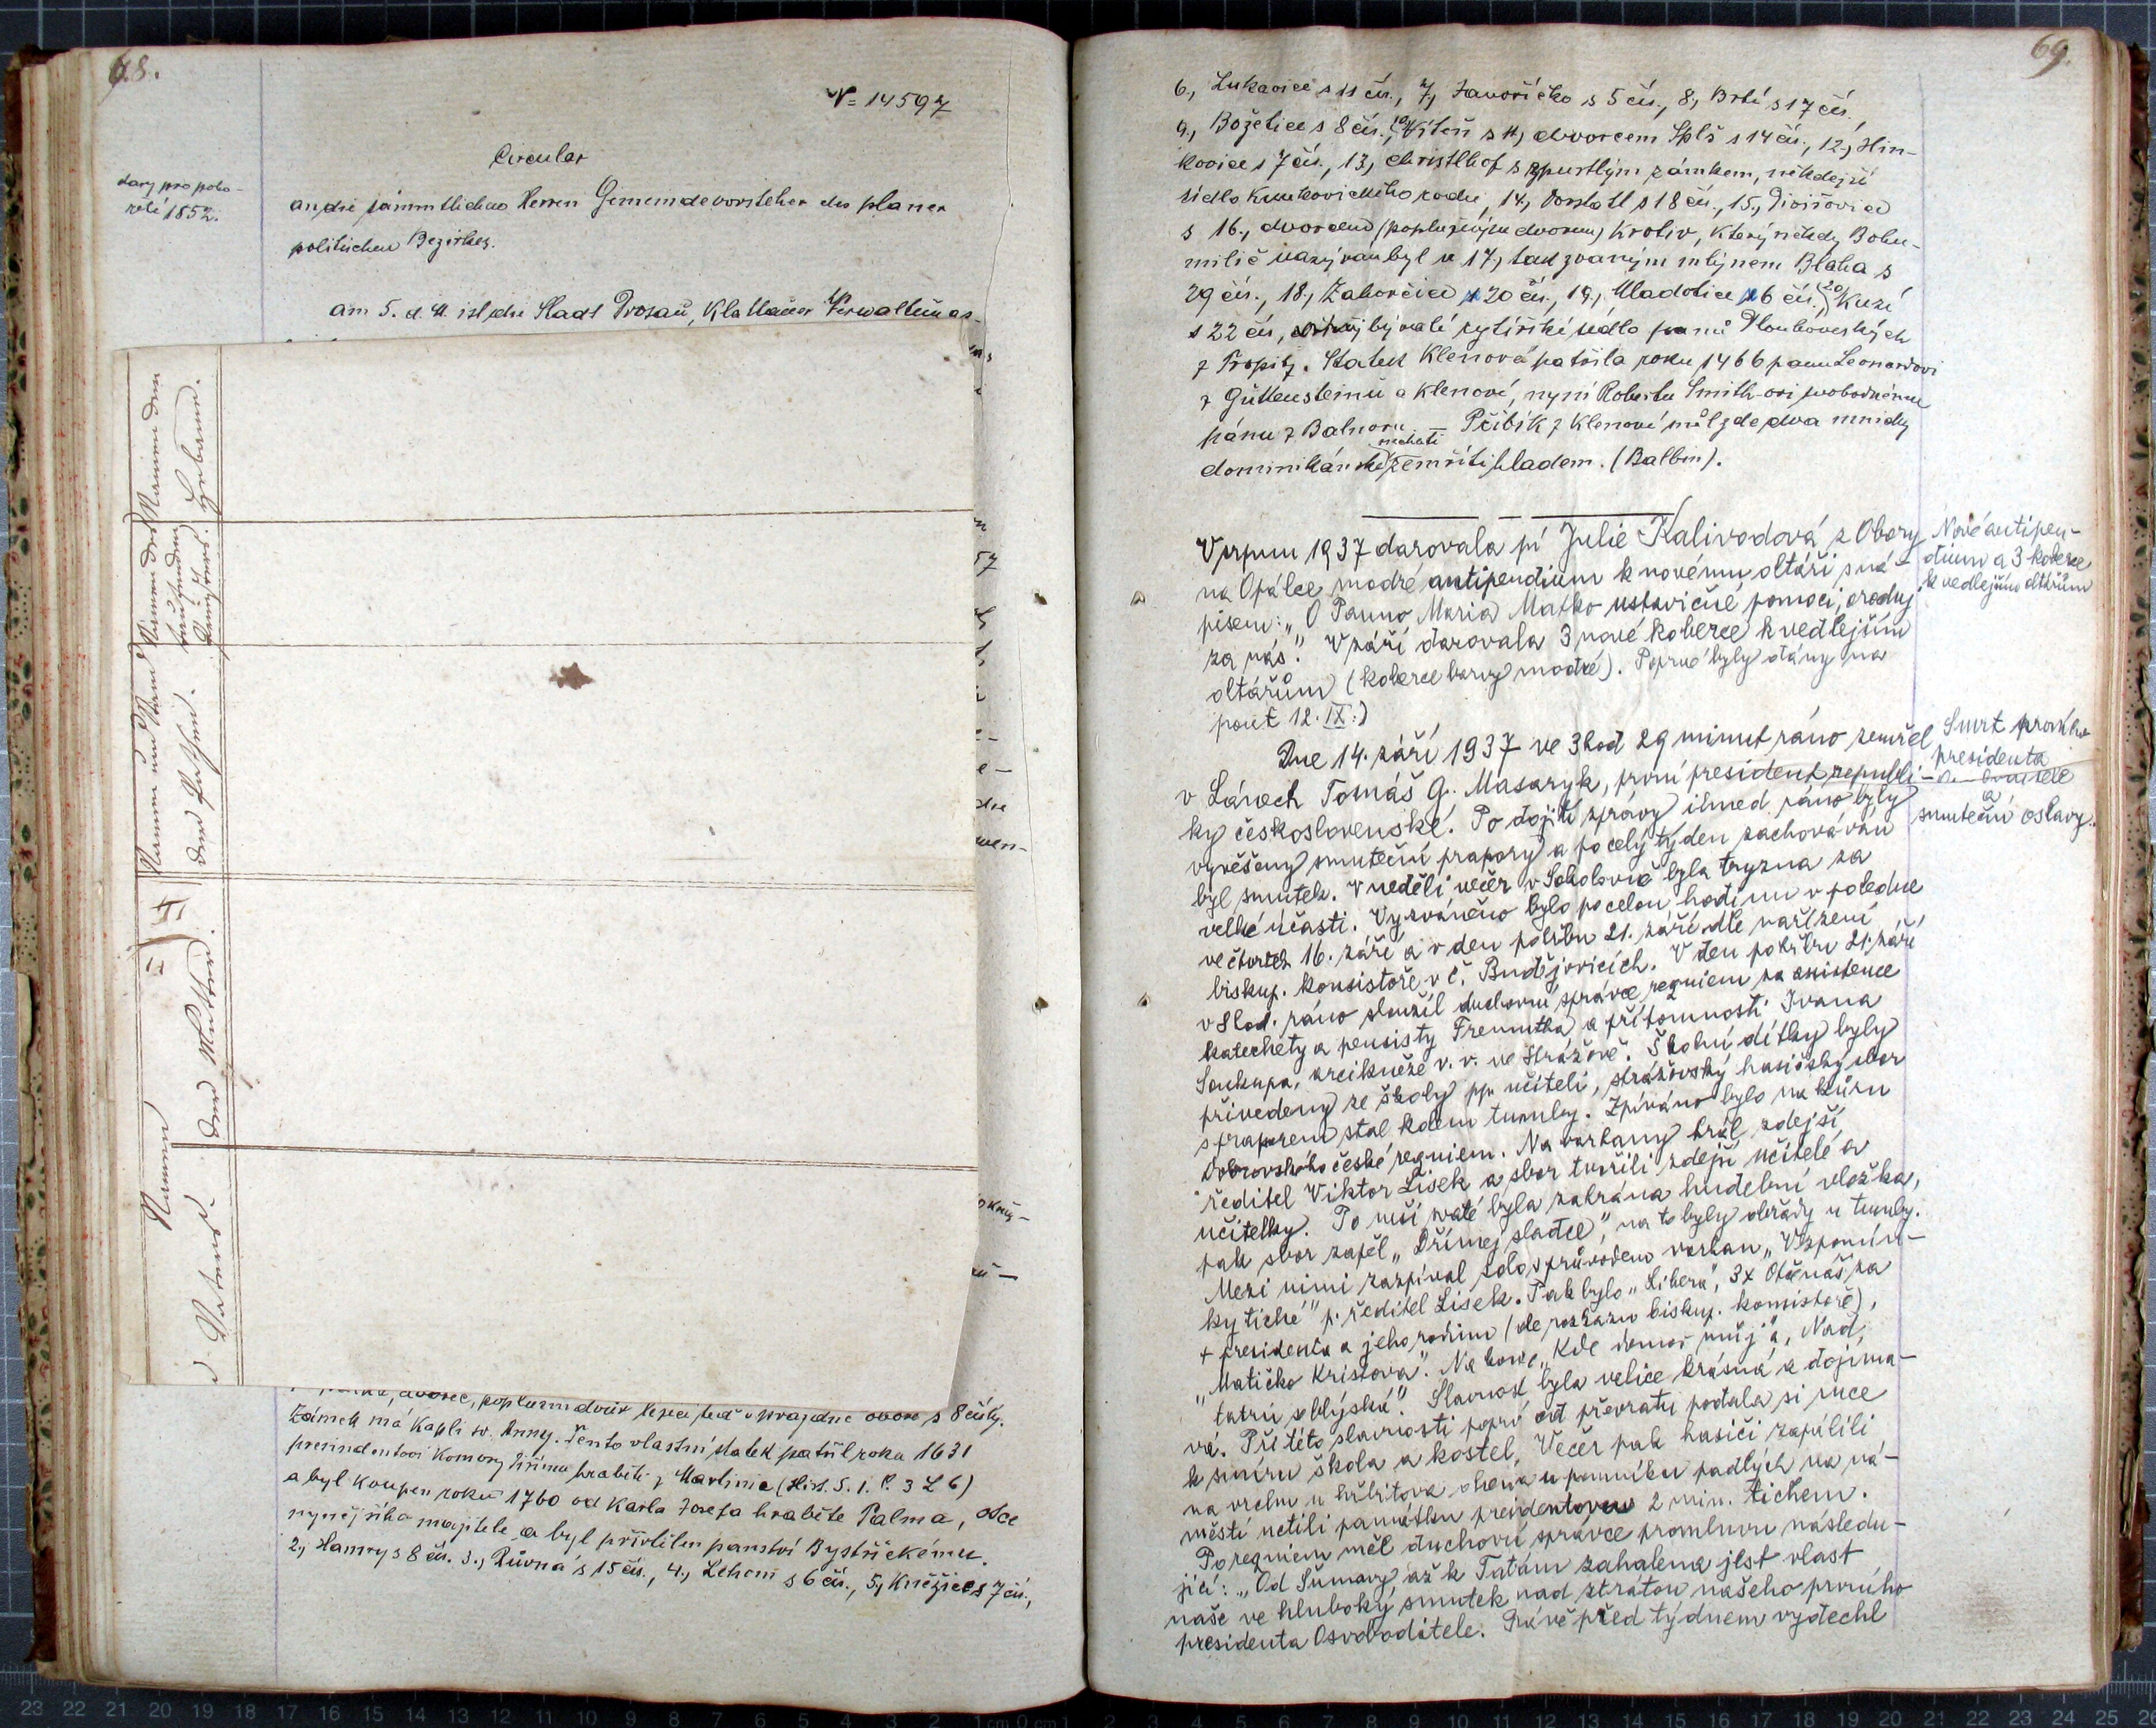 68.
N= 14597
Circular
dary pro poho-
relé 1852.
an die sämmtlichen Herren Gemeindevorsteher des planer
politischen Bezirkes.
am 5. d. M. ist die Stadt Drosau, Klattauer Verwaltungs-
Namen
des Vaters.
der Mutter.
Namen und Stand
der Pathen.
Namen des
taufenden
Priesters.
Namen der
Hebamme.
dvorec, poplužní dvůr
s 8 čísly.
Zámek má kapli sv. Anny. Tento vlastní statek patřil roku 1631
presindentovi komory Jiřímu hraběti z Martinic (Hist. S. 1. P. 3 L 6)
a byl koupen roku 1760 od Karla Josefa hraběte Palma, otce
nynějšího majitele a byl přivtělen panství Bystřickému.
2., Hamry s 8 čís. 3., Růvná s 15 čís., 4., Lehom s 6 čís., 5., Kněžice s 7 čís.,
69.
6., Lukavice s 11 čís., 7., Javoříčko s 5 čís., 8., Brtí s 17 čís.,
9., Božetice s 8 čís., 10., Víteň s 11., dvorcem Spůl s 14 čís., 12., Hin-
kovice s 7 čís., 13., Christlhof s zpustlým zámkem, někdejší
sídlo Kunkovického rodu, 14., Vorstatl s 18 čís., 15., Divišovice
s 16., dvorcem (poplužným dvorem) Krotiv, který někdy Bohu-
milič nazýván byl a 17., tak zvaným mlýnem Blaha s
29 čís., 18., Zahorčice s 20 čís., 19., Uladotice s 6 čís. 20., Kuzí
s 22 čís, bývalé rytířské sídlo panů Dlouhoveských
z Tropitz. Statek Klenová patřila roku 1466 panu Leonardovi
z Güttensteinu a Klenové, nyní Robertu Smith-ovi svobodnému
pánu z Balnoru. — Přibík z Klenové měl zde dva mnichy
dominikánské nechati zemříti hladem. (Balbin).
V srpnu 1937 darovala pí Julie Kalivodová z Obory
na Opálce modré antipendium k novému oltáři s ná-
pisem: „O Panno Maria Matko ustavičné pomoci, oroduj
za nás." V září darovala 3 nové koberce k vedlejším
oltářům (koberce barvy modré). Poprvé byly dány na
pouť 12. IX.)
Nové antipen-
dium a 3 koberce
k vedlejším oltářům
Dne 14. září 1937 ve 3 hod 29 minut ráno zemřel
v Lánech Tomáš G. Masaryk, první president republi-
ky československé. Po dojití zprávy ihned ráno byly
vyvěšeny smuteční prapory a po celý týden zachováván
byl smutek. V neděli večer v Sokolovně byla tryzna za
velké účasti. Vyzváněno bylo po celou hodinu v poledne
ve čtvrtek 16. září a v den pohřbu 21. září dle nařízení
biskup. konsistoře v Č. Budějovicích. V den pohřbu 21. září
v 8 hod. ráno sloužil duchovní správce requiem za asistence
katechety a pensisty Fremutha a přítomnosti Ivana
Soukupa, arcikněze v. v. ve Strážově. Školní dítky byly
přivedeny ze školy pp. učiteli, strážovský hasičský sbor
s praporem stál kolem tumby. Zpíváno bylo na kůru
Dobrovského české requiem. Na varhany hrál zdejší
ředitel Viktor Lísek a sbor tvořili zdejší učitelé a
učitelky. Po mši svaté byla zahrána hudební vložka,
pak sbor zapěl „Dřímej sladce", na to byly obřady u tumby.
Mezi nimi zazpíval solo s průvodem varhan „Vzpomín-
ky tiché" p. ředitel Lísek. Pak bylo „Libera", 3x Otčenáš za
+ presidenta a jeho rodinu (dle rozkazu biskup. konsistoře),
„Matičko Kristova". Na konec „Kde domov můj" a „Nad
tatrú sa blýská". Slavnost byla velice krásná a dojíma-
vá. Při této slavnosti poprvé od převratu podala si ruce
k smíru škola a kostel. Večer pak hasiči zapálili
na vrchu u hřbitova ohena u pomníku padlých na ná-
městí uctili památku presidentovu 2 min. tichem.
Po requiem měl duchovní správce promluvu následu-
jící: „Od Šumavy až k Tatrám zahalena jest vlast
naše ve hluboký smutek nad ztrátou našeho prvního
presidenta Osvoboditele. Právě před týdnem vydechl
Smrt prvního
presidenta
a
smuteční oslavy.